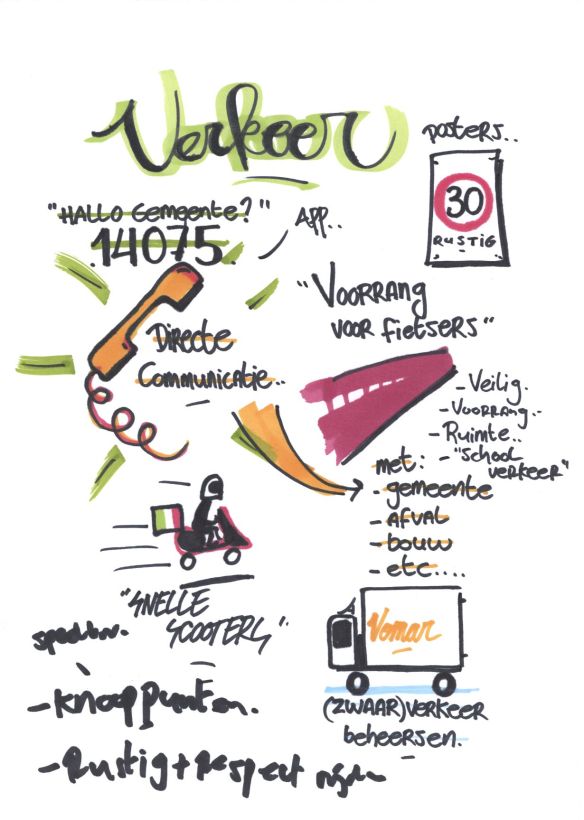 Verkeer
posters..
30
RUSTIG
"HALLO Gemeente?"
14075
App..
"VOORRANG
VOOR fietsers"
Directe
Communicatie..
- Veilig.
- Voorrang..
- Ruimte..
- "School
verkeer"
met:
- gemeente
- AFVAL
- bouw
- etc....
"SNELLE
SCOOTERS"
Vomar
(ZWAAR)VERKEER
beheersen.
- Knooppunten.
- Rustig + Respect